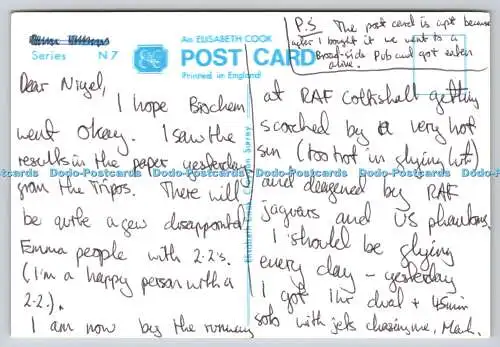 Series N7
An ELISABETH COOK
POST CARD
Printed in England
P.S The post card is apt because
after I bought it we went to a
Broad-side Pub and got eaten
alive.
Dear Nigel,
I hope Biochem
went Okay. I saw the
results in the paper yesterday
from the Tripos. There will
be quite a few disappointed
Emma people with 2-2's.
(I'm a happy person with a
2-2.).
I am now by the runway
at RAF Coltishall getting
scorched by a very hot
sun (too hot in flying kit)
and deafened by RAF
jaguars and US phantoms.
I should be flying
every day - yesterday
I got 1hr dual + 45min
solo with jets chasing me, Mark.
Dodo-Postcards Dodo-Postcards Dodo-Postcards Dodo-Postcards Dodo-Postcards